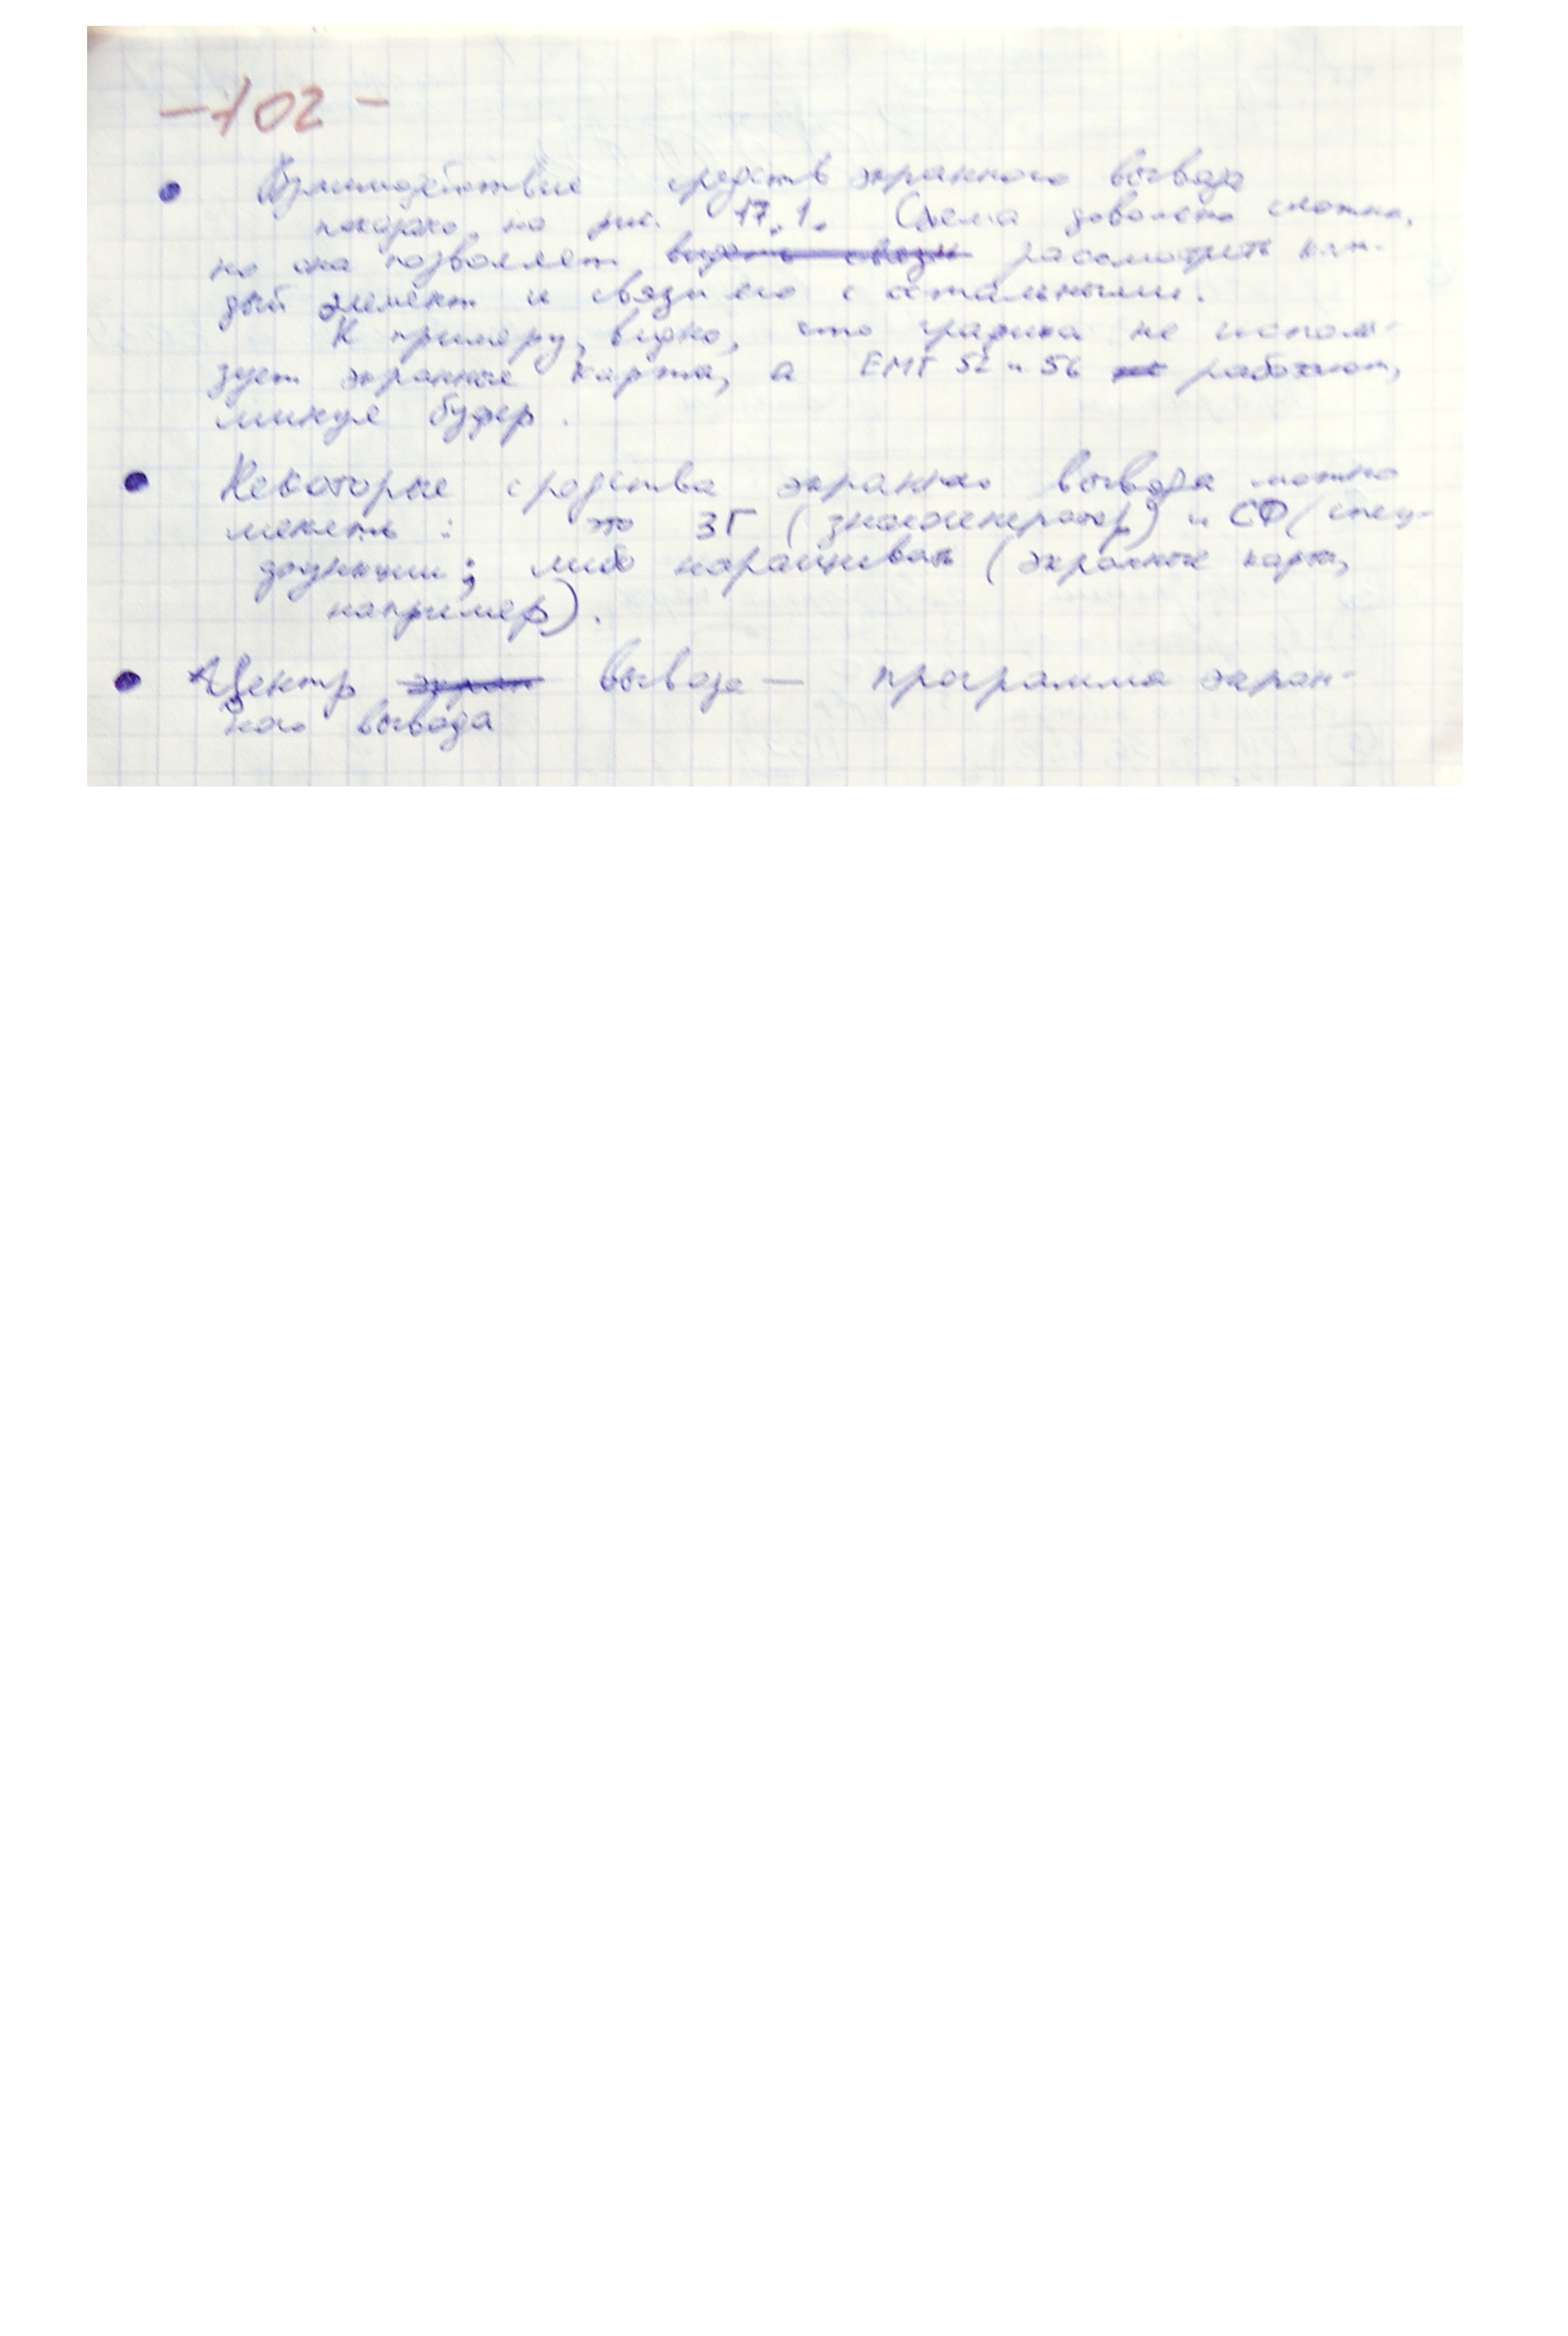 -102-
• Взаимодействие средств экранного вывода
показано на рис. 17.1. Схема довольно сложна,
но она позволяет видеть связи рассмотреть каж-
дый элемент и связи его с остальными.
К примеру, видно, что графика не исполь-
зует экранные карты, а EMT 52 и 56 не работают,
минуя буфер.
• Некоторые средства экранного вывода можно
менять: это ЗГ (знакогенератор) и СФ (спец-
функции; либо наращивать (экранные карты,
например).
• Центр экран вывода — программа экран-
ного вывода